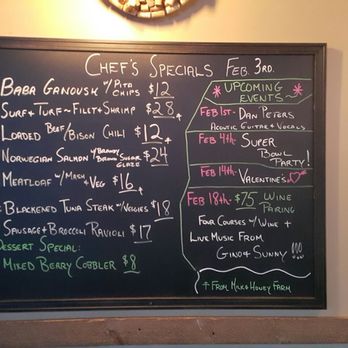 Chef's Specials Feb. 3rd.
Baba Ganoush w/ Pita Chips $12
Surf & Turf ~ Filet & Shrimp $28
Loaded Beef/Bison Chili $12
Norwegian Salmon w/ Brandy Brown Sugar Glaze $24
Meatloaf w/ Mash & Veg $16
Blackened Tuna Steak w/ Veggies $18
Sausage & Broccoli Ravioli $17
Dessert Special:
Mixed Berry Cobbler $8
Upcoming
Events ~
Feb 1st - Dan Peters
Acoustic Guitar & Vocals
Feb 4th - Super
Bowl
Party!
Feb 14th - Valentine's
Feb 18th - $75 Wine
Pairing
Four Courses w/ Wine +
Live Music From
Gino & Sunny !!!
+ From Milk & Honey Farm